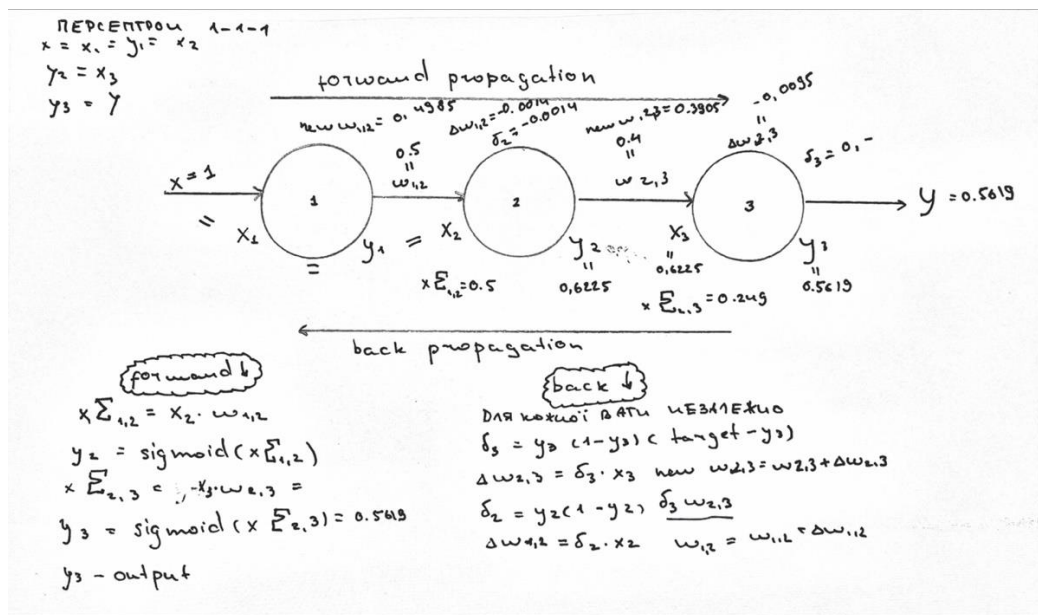 ПЕРСЕПТРОН 1-1-1
x = x₁ = y₁ = x₂
y₂ = x₃
y₃ = y
forward propagation
new w₁,₁₂ = 0,4985
Δw₁,₂ = -0.0014
δ₂ = -0.0014
new w,₂,₃ = 0.3905
-0,0095
=
Δw₂,₃
δ₃ = 0, -
x = 1
=
x₁
1
=
y₁
0.5
=
w₁,₂
=
x₂
2
xΣ₁,₂ = 0.5
y₂
=
0,6225
0.4
=
w₂,₃
x₃
=
0,6225
x Σ₂,₃ = 0.249
3
y₃
=
0.5619
y = 0.5619
back propagation
forward ↓
xΣ₁,₂ = x₂ · w₁,₂
y₂ = sigmoid(xΣ₁,₂)
x Σ₂,₃ = x₃ · w₂,₃ =
y₃ = sigmoid(x Σ₂,₃) = 0.5619
y₃ - output
back ↓
ДЛЯ КОЖНОЇ ВАГИ НЕЗАЛЕЖНО
δ₃ = y₃ (1-y₃)( target - y₃)
Δw₂,₃ = δ₃ · x₃ new w₂,₃ = w₂,₃ + Δw₂,₃
δ₂ = y₂(1-y₂) δ₃ w₂,₃
Δw₁,₂ = δ₂ · x₂ w₁,₂ = w₁,₂ + Δw₁,₂